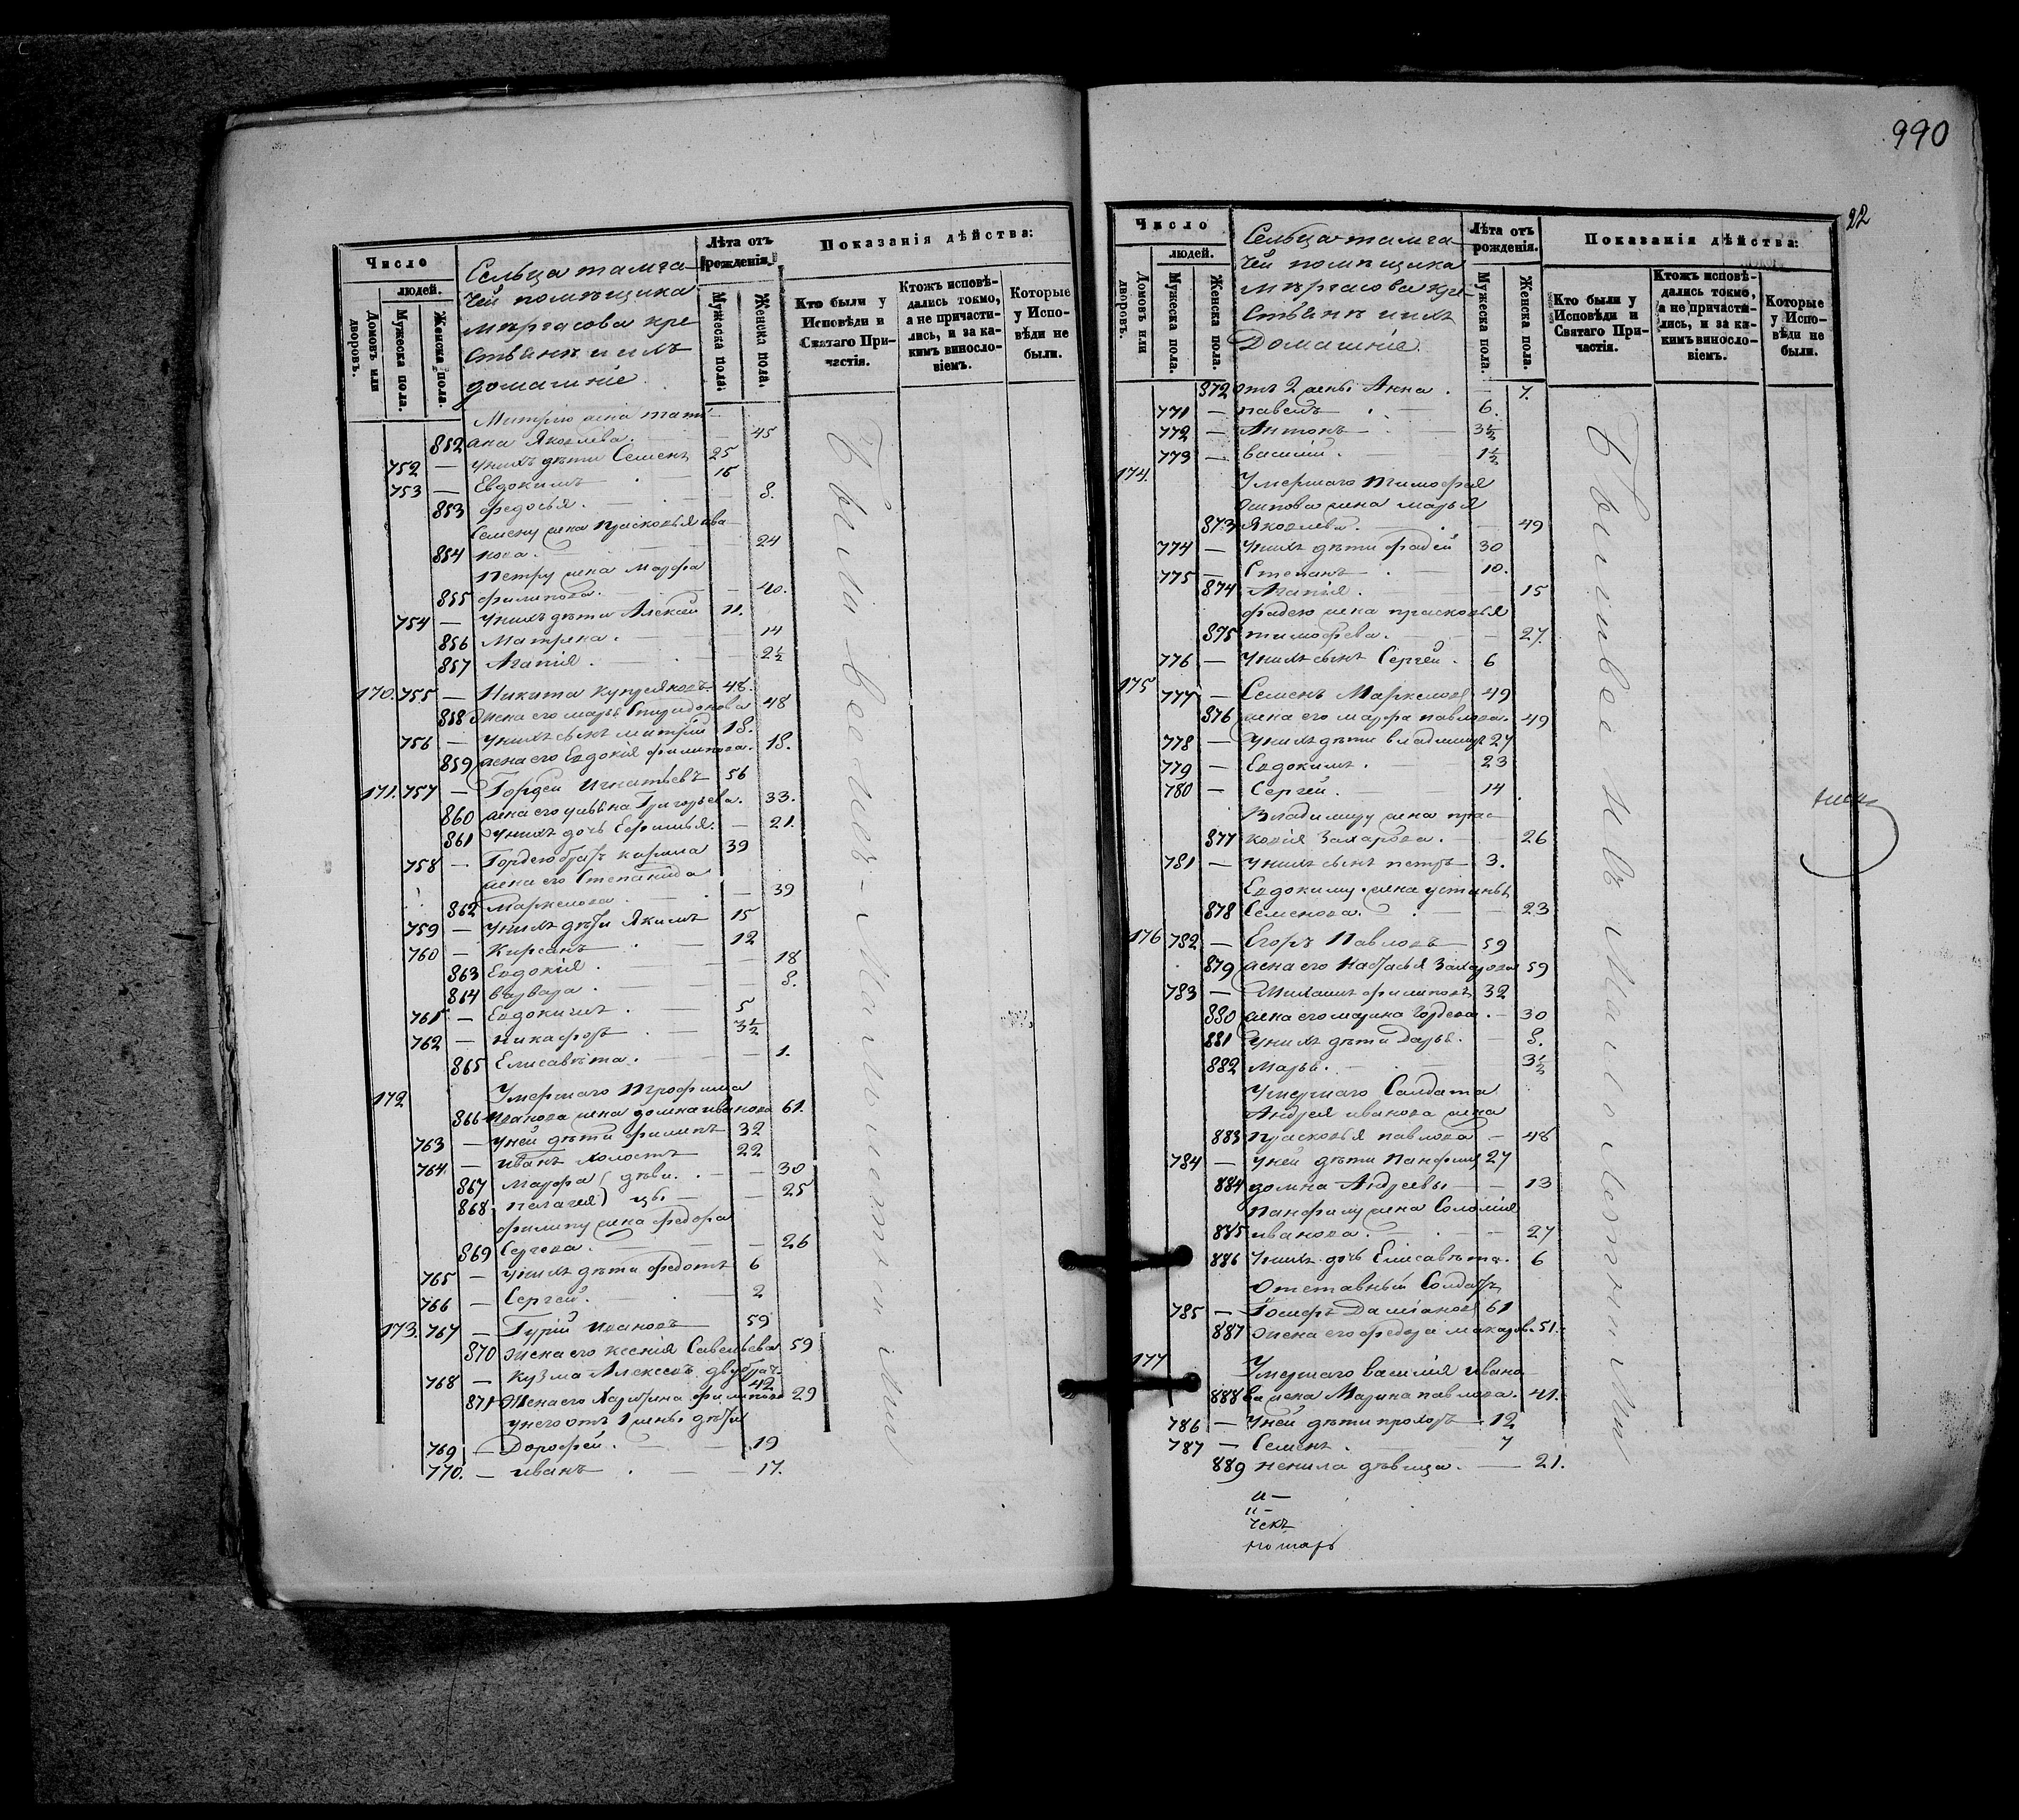 990
22
Число
людей.
Домовъ или дворовъ.
Мужеска пола.
Женска пола.
Сельца тамга-
чей помѣщика
Мѣргасова кре
стьянъ и ихъ
домашніе
Лѣта отъ рожденія.
Мужеска пола.
Женска пола.
Показанія дѣйства:
Кто были у Исповѣди и Святаго Причастія.
Ктожъ исповѣдались токмо, а не причастились, и за какимъ винословіемъ.
Которые у Исповѣди не были.
Митрію жена тати-
852 ана Яковлева. 45
752 — У нихъ дѣти Семенъ 25
753 — Евдокимъ 15
853 Федосья. 8.
Семену жена Прасковья ива
854 нова. 24
Петру жена Марфа
855 филипова. 40.
754 — У нихъ дѣти Алексей 11.
856 Матрена. 14
857 Агапія. 2½
170. 755 — Никита Купріяновъ 48.
858 Жена его марья Спиридонова 48
756 — У нихъ сынъ митрій 18.
859 жена его Евдокія филипова. 18.
171. 757 — Гордей Игнатьевъ 56
860 жена его ульяна Григорьева. 33.
861 У нихъ дочь Ефимья. — 21.
758 — Гордею братъ 39
жена его Степанида
862 Маркелова. 39
759 — У нихъ дѣти Якимъ 15
760 — Кирсанъ 12
863 Евдокія. 18
864 варвара. 8.
761 — Евдокимъ. 5
762 — Никафоръ 3½
865 Елисавѣта. 1.
172 Умершаго Трофима
866 Иванова жена домна иванова 61.
763 — У ней дѣти филипъ 32
764. — иванъ холостъ 22
867 Марфа ( дѣви. — 30
868 пелагея) цы — 25
филипу жена федора
869 Сергева. 26
765 — У нихъ дѣти федотъ 6
766 — Сергей. 2
173. 767 — Гурій Ивановъ 59
870 жена его ксенія Савельева 59
768 — Кузма Алексевъ двубрат. 42
871 Жена его Харитина филипова 29
у него отъ 1 жены дѣти
769 — Дорофей. 19
770. — иванъ 17.
Были все у св. Тайнъ
Число
людей.
Домовъ или дворовъ.
Мужеска пола.
Женска пола.
Сельца тамга-
чей помѣщика
Мѣргасова кре-
стьянъ и ихъ
Домашніе.
Лѣта отъ рожденія.
Мужеска пола.
Женска пола.
Показанія дѣйства:
Кто были у Исповѣди и Святаго Причастія.
Ктожъ исповѣдались токмо, а не причастились, и за какимъ винословіемъ.
Которые у Исповѣди не были.
872 Отъ 2 жены Анна. 7.
771 — павелъ 6.
772 — Антонъ 3½
773 — василій. 1½
174. Умершаго Тимофея
Осипова жена марья
873 Яковлева. 49
774 — У нихъ дѣти фадей 30
775 — Степанъ 10.
874 Агапія. 15
фадею жена прасковья
875 тимофѣева. 27.
776 — У нихъ сынъ Сергей. 6
175 777 — Семенъ Маркеловъ 49
876 жена его марфа павлова. 49
778 — У нихъ дѣти владимиръ 27
779 — Евдокимъ. 23
780 — Сергей. 14
Владимиру жена прас-
877 ковія Захарова. 26
781 — У нихъ сынъ петръ 3.
Евдокиму жена устинья
878 Семенова. 23
176 782 — Егоръ Павловъ 59
879 жена его Настасья Захарова 59
783 — филиповъ 32
880 жена его марина Гордева. — 30
881 У нихъ дѣти Дарья. — 8.
882 Марья. 3½
Умершаго Солдата
Андрея иванова жена
883 Прасковья павлова — 48
784 — У ней дѣти Панфилъ 27
884 домна Андреевы — 13
Панфилу жена Соломія
885 иванова. 27
886 У нихъ дочь Елисавѣта. 6
Отставный Солдатъ
785 — Даміановъ 61
887 Жена его федора макарова. 51.
177 Умершаго василія ивано
888 ва жена Марина павлова. 41.
786 — У ней дѣти прохоръ 12
787 — Семенъ. 7
889 ненила дѣвица. — 21.